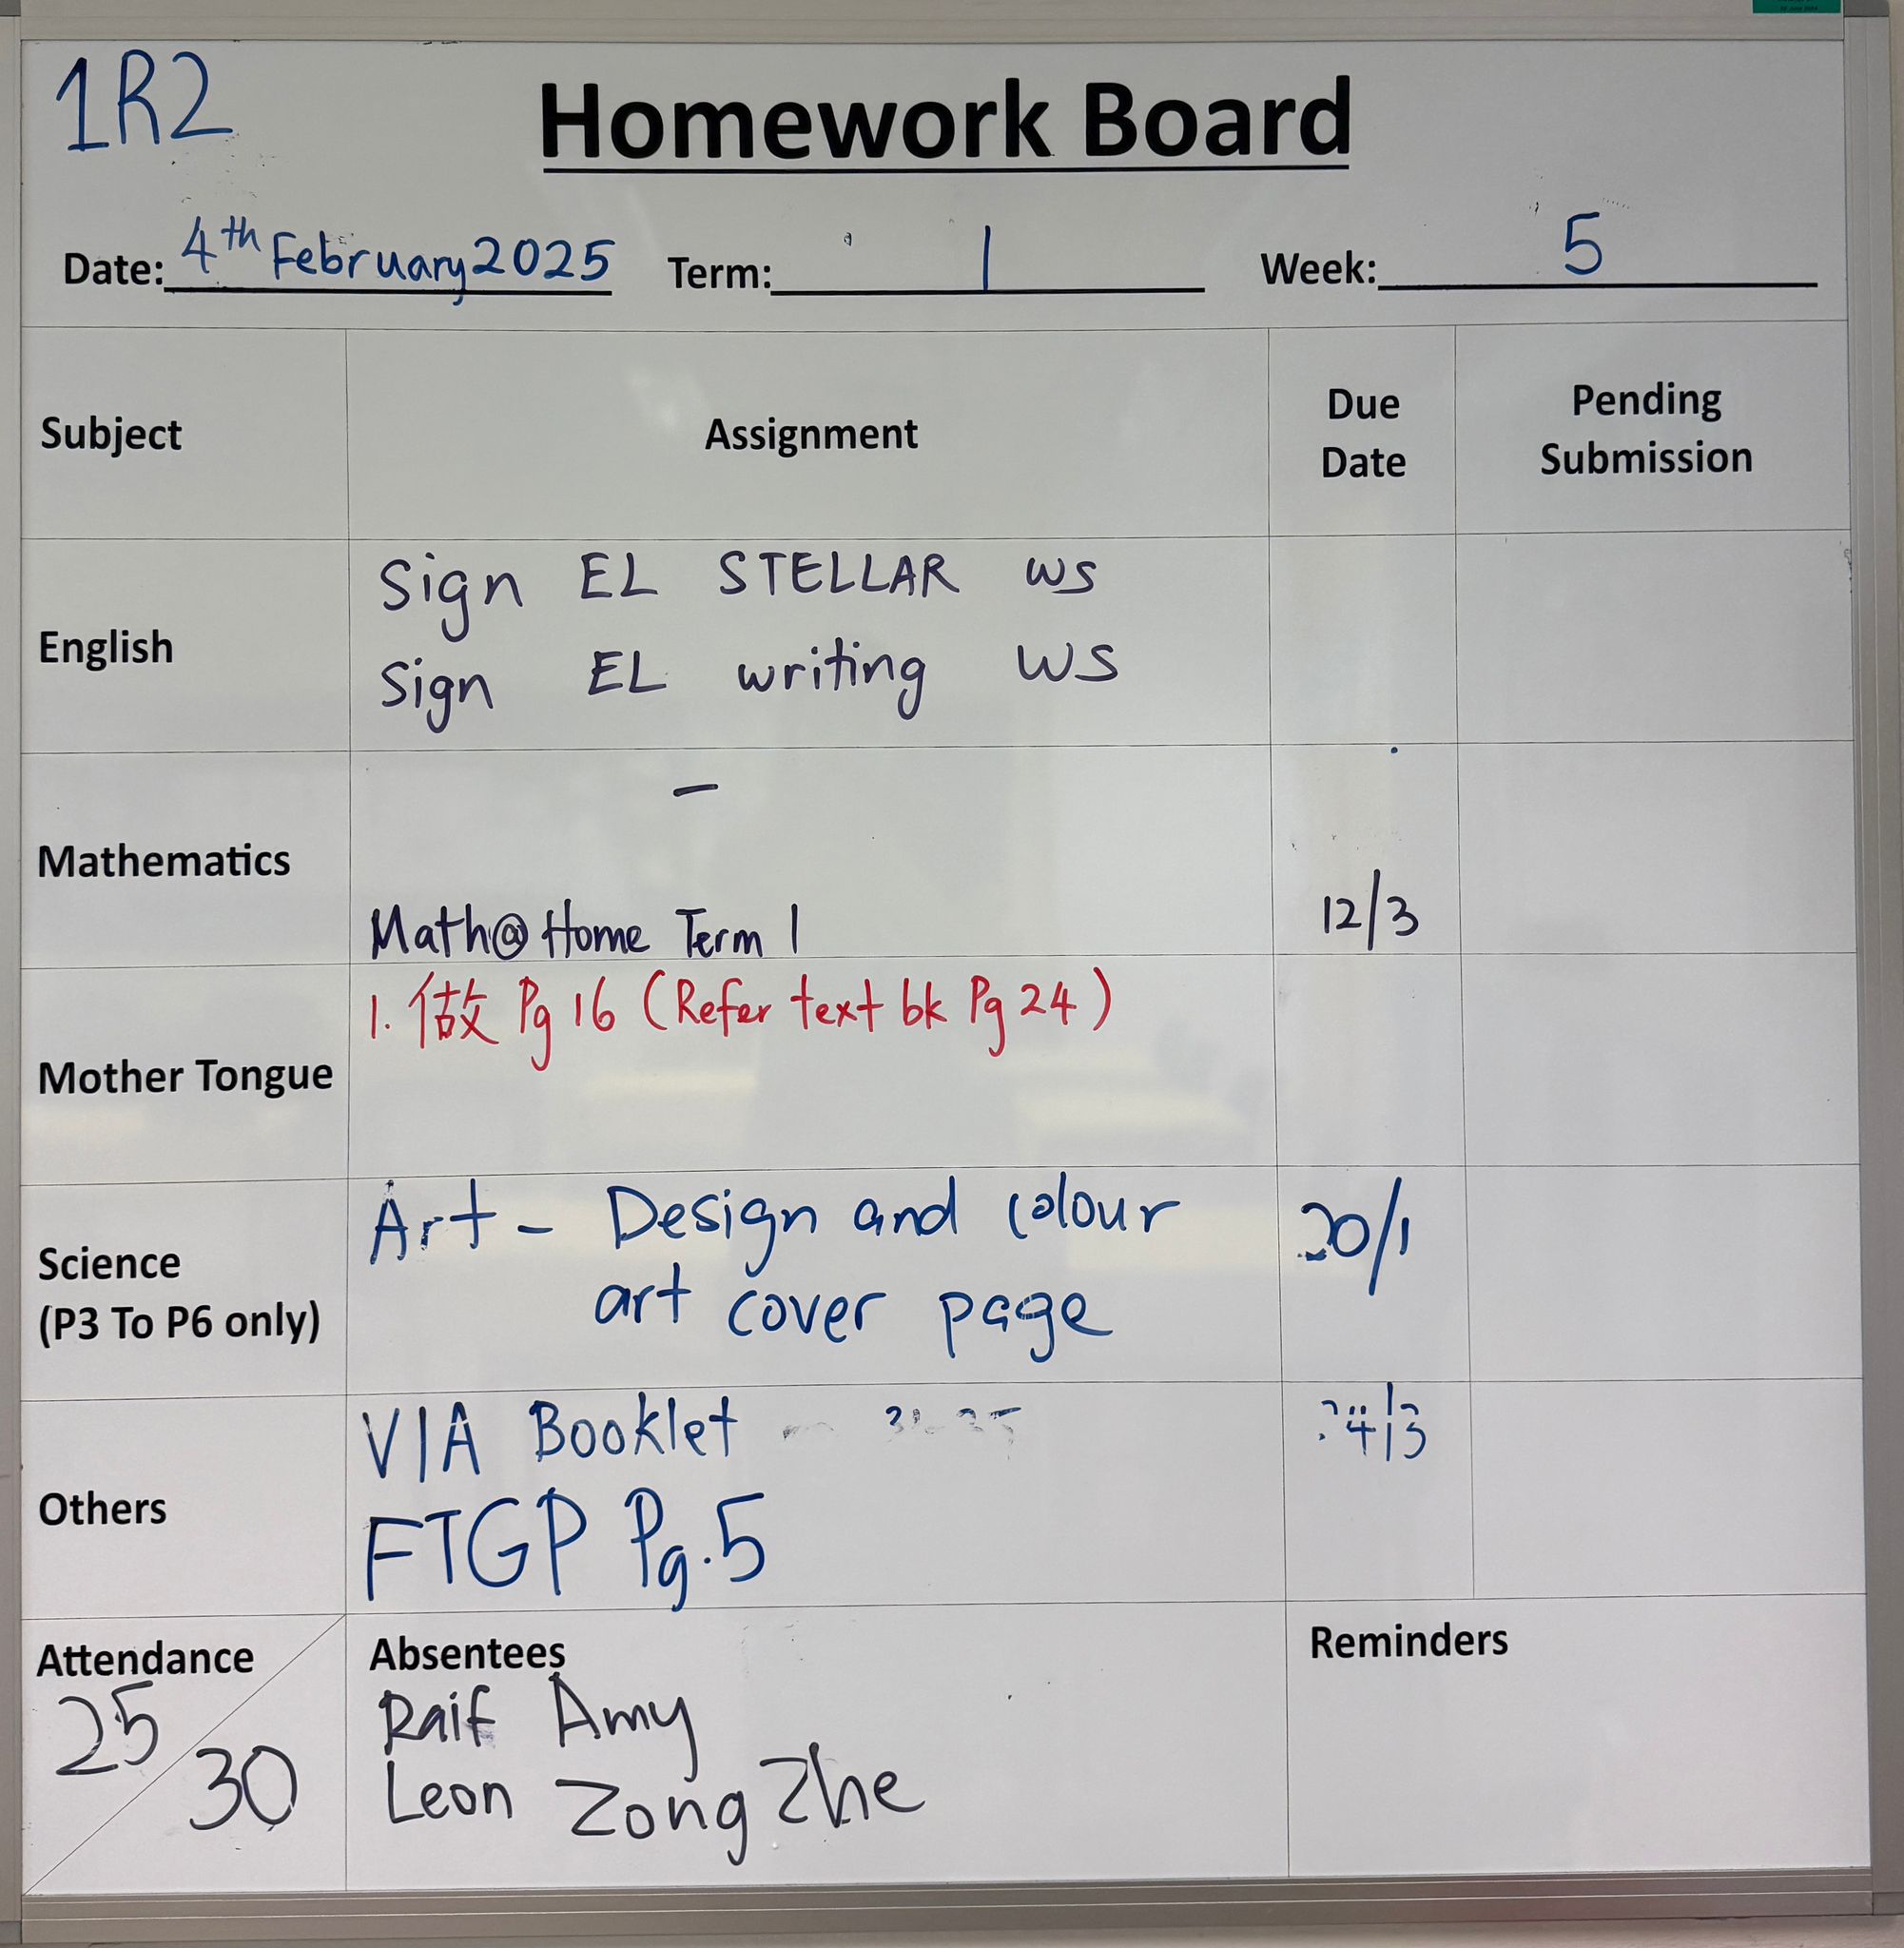 1R2
Homework Board
Date: 4th February 2025 Term: 1 Week: 5
Subject Assignment Due Date Pending Submission
English
Sign EL STELLAR WS
Sign EL writing WS
Mathematics
–
Math@Home Term 1 12/3
Mother Tongue
1. 做 Pg 16 (Refer text bk Pg 24)
Science
(P3 To P6 only)
Art - Design and colour 20/1
art cover page
Others
VIA Booklet
FTGP Pg.5
Attendance
25/30
Absentees
Raif Amy
Leon Zong Zhe
Reminders